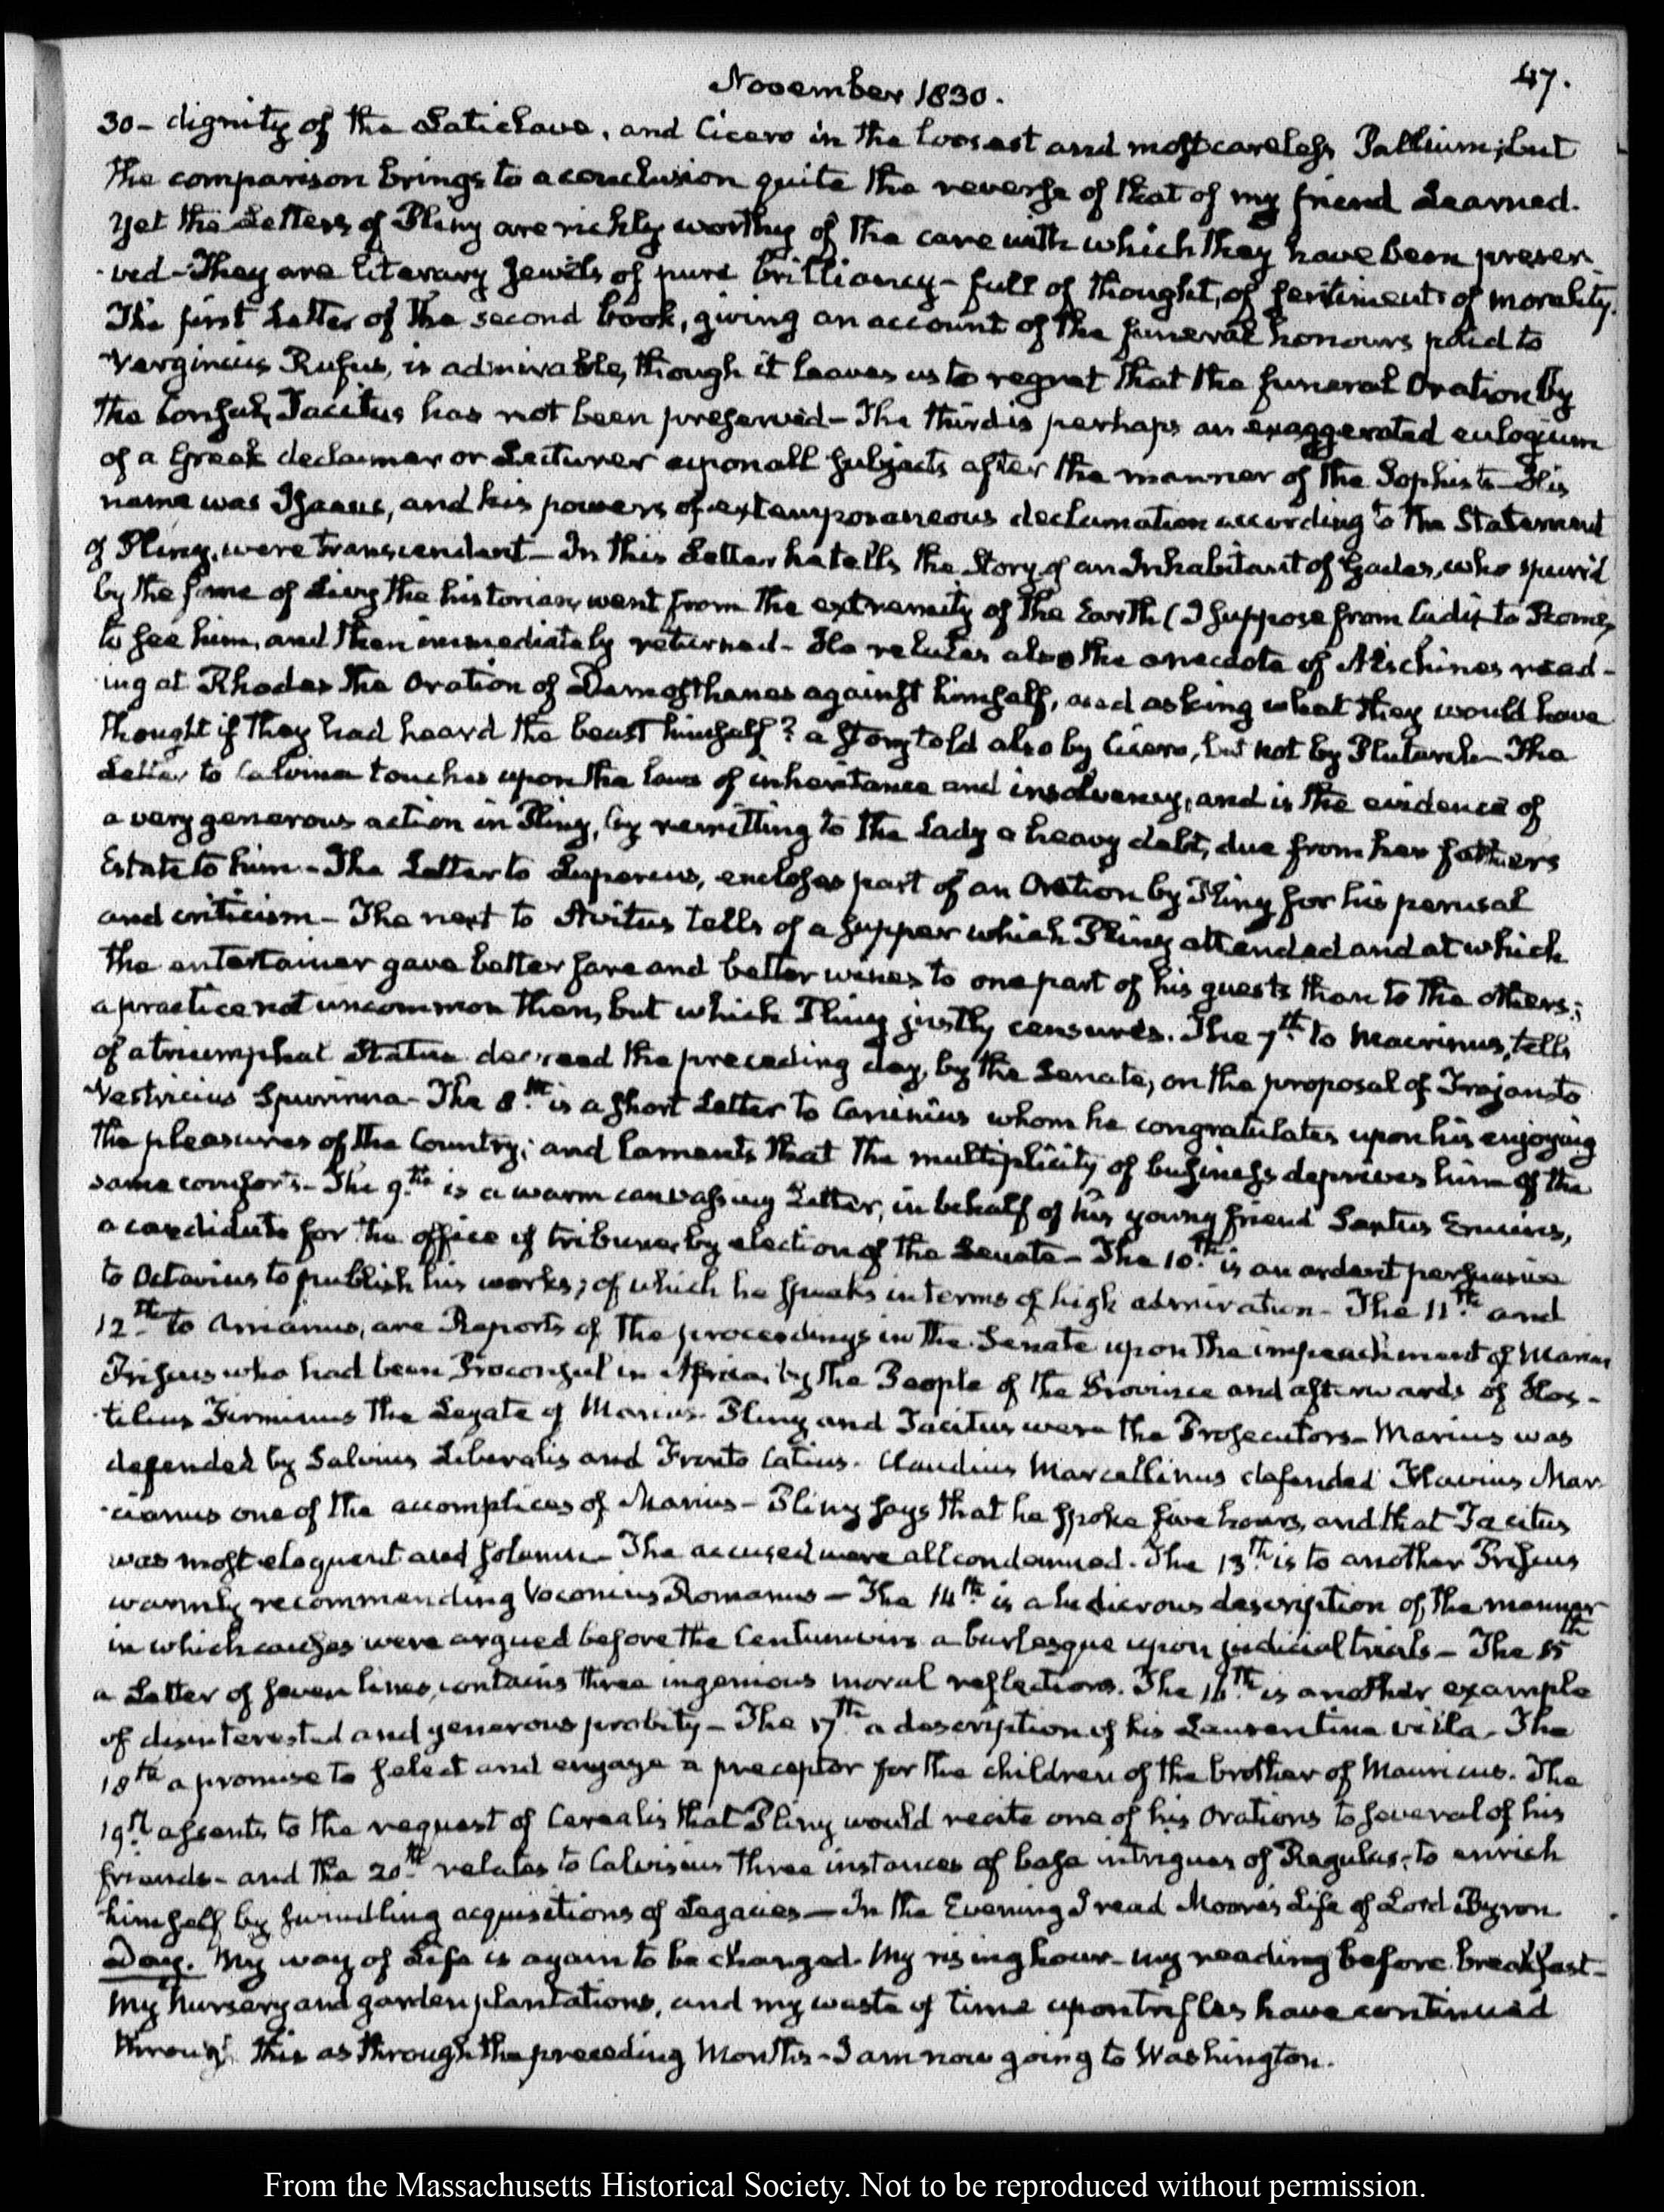 November 1830.
47.
30- dignity of the Laticlave, and Cicero in the loosest and most careless Pallium; but
the comparison brings to a conclusion quite the reverse of that of my friend Learned.
Yet the Letters of Pliny are richly worthy of the care with which they have been preser-
-ved- They are literary jewels of pure brilliancy- full of thought, of sentiment of morality.
The first Letter of the second book, giving an account of the funeral honours paid to
Verginius Rufus, is admirable, though it leaves us to regret that the funeral Oration by
the Consul, Tacitus has not been preserved- The third is perhaps an exaggerated eulogium
of a Greek declaimer or Lecturer upon all subjects after the manner of the Sophists- His
name was Isaeus, and his powers of extemporaneous declamation according to the Statement
of Pliny, were transcendent- In this Letter he tells the Story of an Inhabitant of Gades, who spurr'd
by the fame of Livy the historian, went from the extremity of the Earth (I suppose from Cadiz to Rome,
to see him, and then immediately returned- He relates also the anecdote of Æschines read-
-ing at Rhodes the Oration of Demosthenes against himself, and asking what they would have
thought if they had heard the beast himself? a story told also by Cicero, but not by Plutarch- The
Letter to Calvina touches upon the laws of inheritance and insolvency, and is the evidence of
a very generous action in Pliny, by remitting to the Lady a heavy debt, due from her fathers
Estate to him- The Letter to Lupercus, encloses part of an Oration by Pliny for his perusal
and criticism- The next to Avitus tells of a supper which Pliny attended and at which
the entertainer gave better fare and better wines to one part of his guests than to the others;
a practice not uncommon then, but which Pliny justly censures. The 7th. to Macrinus, tells
of a triumphal Statue decreed the preceding day, by the Senate, on the proposal of Trajan to
Vestricius Spurinna- The 8th. is a short Letter to Caninius whom he congratulates upon his enjoying
the pleasures of the Country; and laments that the multiplicity of business deprives him of the
same comforts- The 9th. is a warm canvassing Letter, in behalf of his young friend Sextus Erucius,
a candidate for the office of tribune, by election of the Senate- The 10th. is an ardent persuasive
to Octavius to publish his works; of which he speaks in terms of high admiration- The 11th. and
12th. to Arrianus, are Reports of the proceedings in the Senate upon the impeachment of Marius
Priscus who had been Proconsul in Africa, by the People of the Province and afterwards of Hos-
-tilius Firminus the Legate of Marius. Pliny and Tacitus were the Prosecutors- Marius was
defended by Salvius Liberalis and Fronto Catius. Claudius Marcellinus defended Flavius Mar-
-cianus one of the accomplices of Marius- Pliny says that he spoke five hours, and that Tacitus
was most eloquent and solemn- The accused were all condemned. The 13th. is to another Priscus
warmly recommending Voconius Romanus- The 14th. is a ludicrous description of the manner
in which causes were argued before the Centumvirs a burlesque upon judicial trials- The 15th
a Letter of seven lines, contains three ingenious moral reflections. The 16th. is another example
of disinterested and generous probity- The 17th. a description of his Laurentine villa- The
18th a promise to select and engage a preceptor for the children of the brother of Mauricus. The
19th. assents to the request of Cerealis that Pliny would recite one of his Orations to several of his
friends- and the 20th. relates to Calvisius three instances of base intrigues of Regulus, to enrich
himself by swindling acquisitions of Legacies- In the Evening I read Moore's Life of Lord Byron
Day. My way of Life is again to be changed. My rising hour- my reading before breakfast-
My Nursery and garden plantations, and my waste of time upon trifles have continued
through this as through the preceding Months- I am now going to Washington.
From the Massachusetts Historical Society. Not to be reproduced without permission.